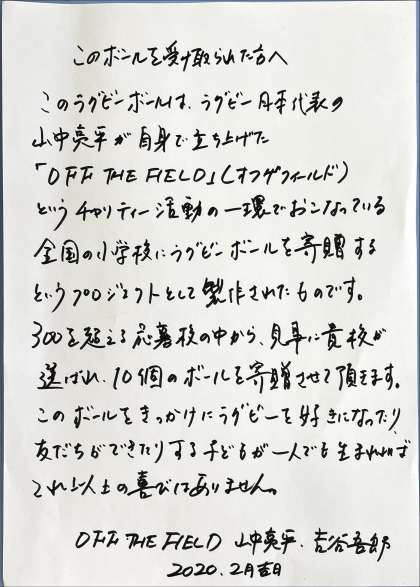 このボールを受け取られた方へ
このラグビーボールは、ラグビー日本代表の
山中亮平が自身で立ち上げた
「OFF THE FIELD」(オフザフィールド)
というチャリティー活動の一環でおこなっている
全国の小学校にラグビーボールを寄贈する
というプロジェクトとして製作されたものです。
300を超える応募校の中から、見事に貴校が
選ばれ、10個のボールを寄贈させて頂きます。
このボールをきっかけにラグビーを好きになったり
友だちができたりする子どもが一人でも生まれれば
これ以上の喜びはありません。
OFF THE FIELD 山中亮平、吉谷吾郎
2020.2月吉日